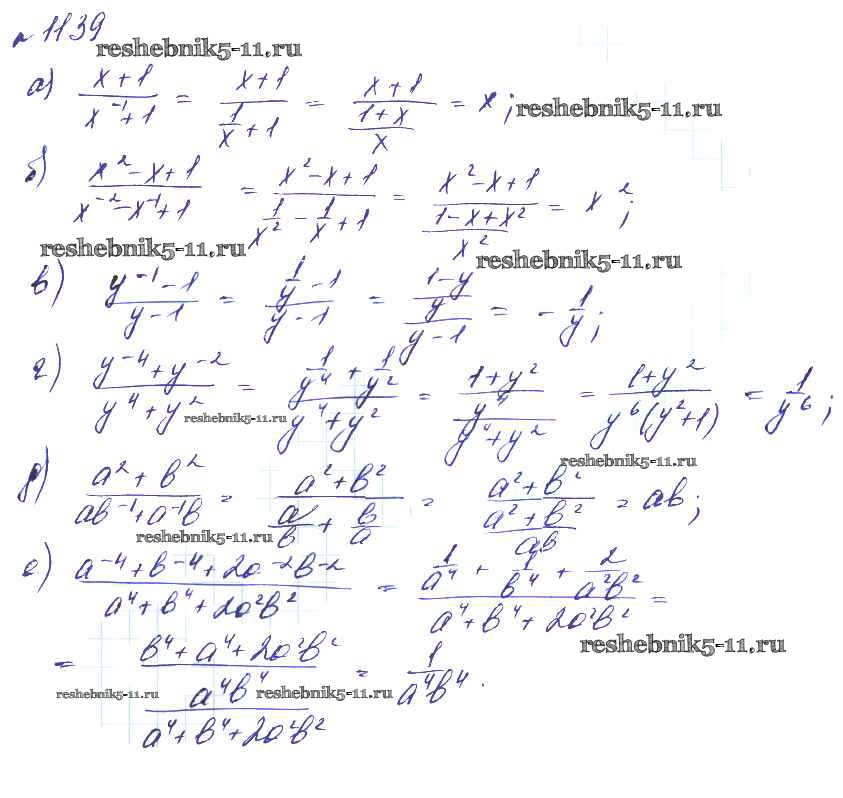 № 1139
reshebnik5-11.ru
а) (x+1)/(x⁻¹+1) = (x+1)/(1/x+1) = (x+1)/((1+x)/x) = x; reshebnik5-11.ru
б) (x²-x+1)/(x⁻²-x⁻¹+1) = (x²-x+1)/(1/x²-1/x+1) = (x²-x+1)/((1-x+x²)/x²) = x²;
reshebnik5-11.ru reshebnik5-11.ru
в) (y⁻¹-1)/(y-1) = (1/y-1)/(y-1) = ((1-y)/y)/(y-1) = -1/y;
г) (y⁻⁴+y⁻²)/(y⁴+y²) = (1/y⁴+1/y²)/(y⁴+y²) = ((1+y²)/y⁴)/(y⁴+y²) = (1+y²)/(y⁶(y²+1)) = 1/y⁶;
reshebnik5-11.ru
reshebnik5-11.ru
д) (a²+b²)/(ab⁻¹+a⁻¹b) = (a²+b²)/(a/b+b/a) = (a²+b²)/((a²+b²)/ab) = ab;
reshebnik5-11.ru
е) (a⁻⁴+b⁻⁴+2a⁻²b⁻²)/(a⁴+b⁴+2a²b²) = (1/a⁴+1/b⁴+2/a²b²)/(a⁴+b⁴+2a²b²) =
reshebnik5-11.ru
= ((b⁴+a⁴+2a²b²)/a⁴b⁴)/(a⁴+b⁴+2a²b²) = 1/a⁴b⁴.
reshebnik5-11.ru reshebnik5-11.ru